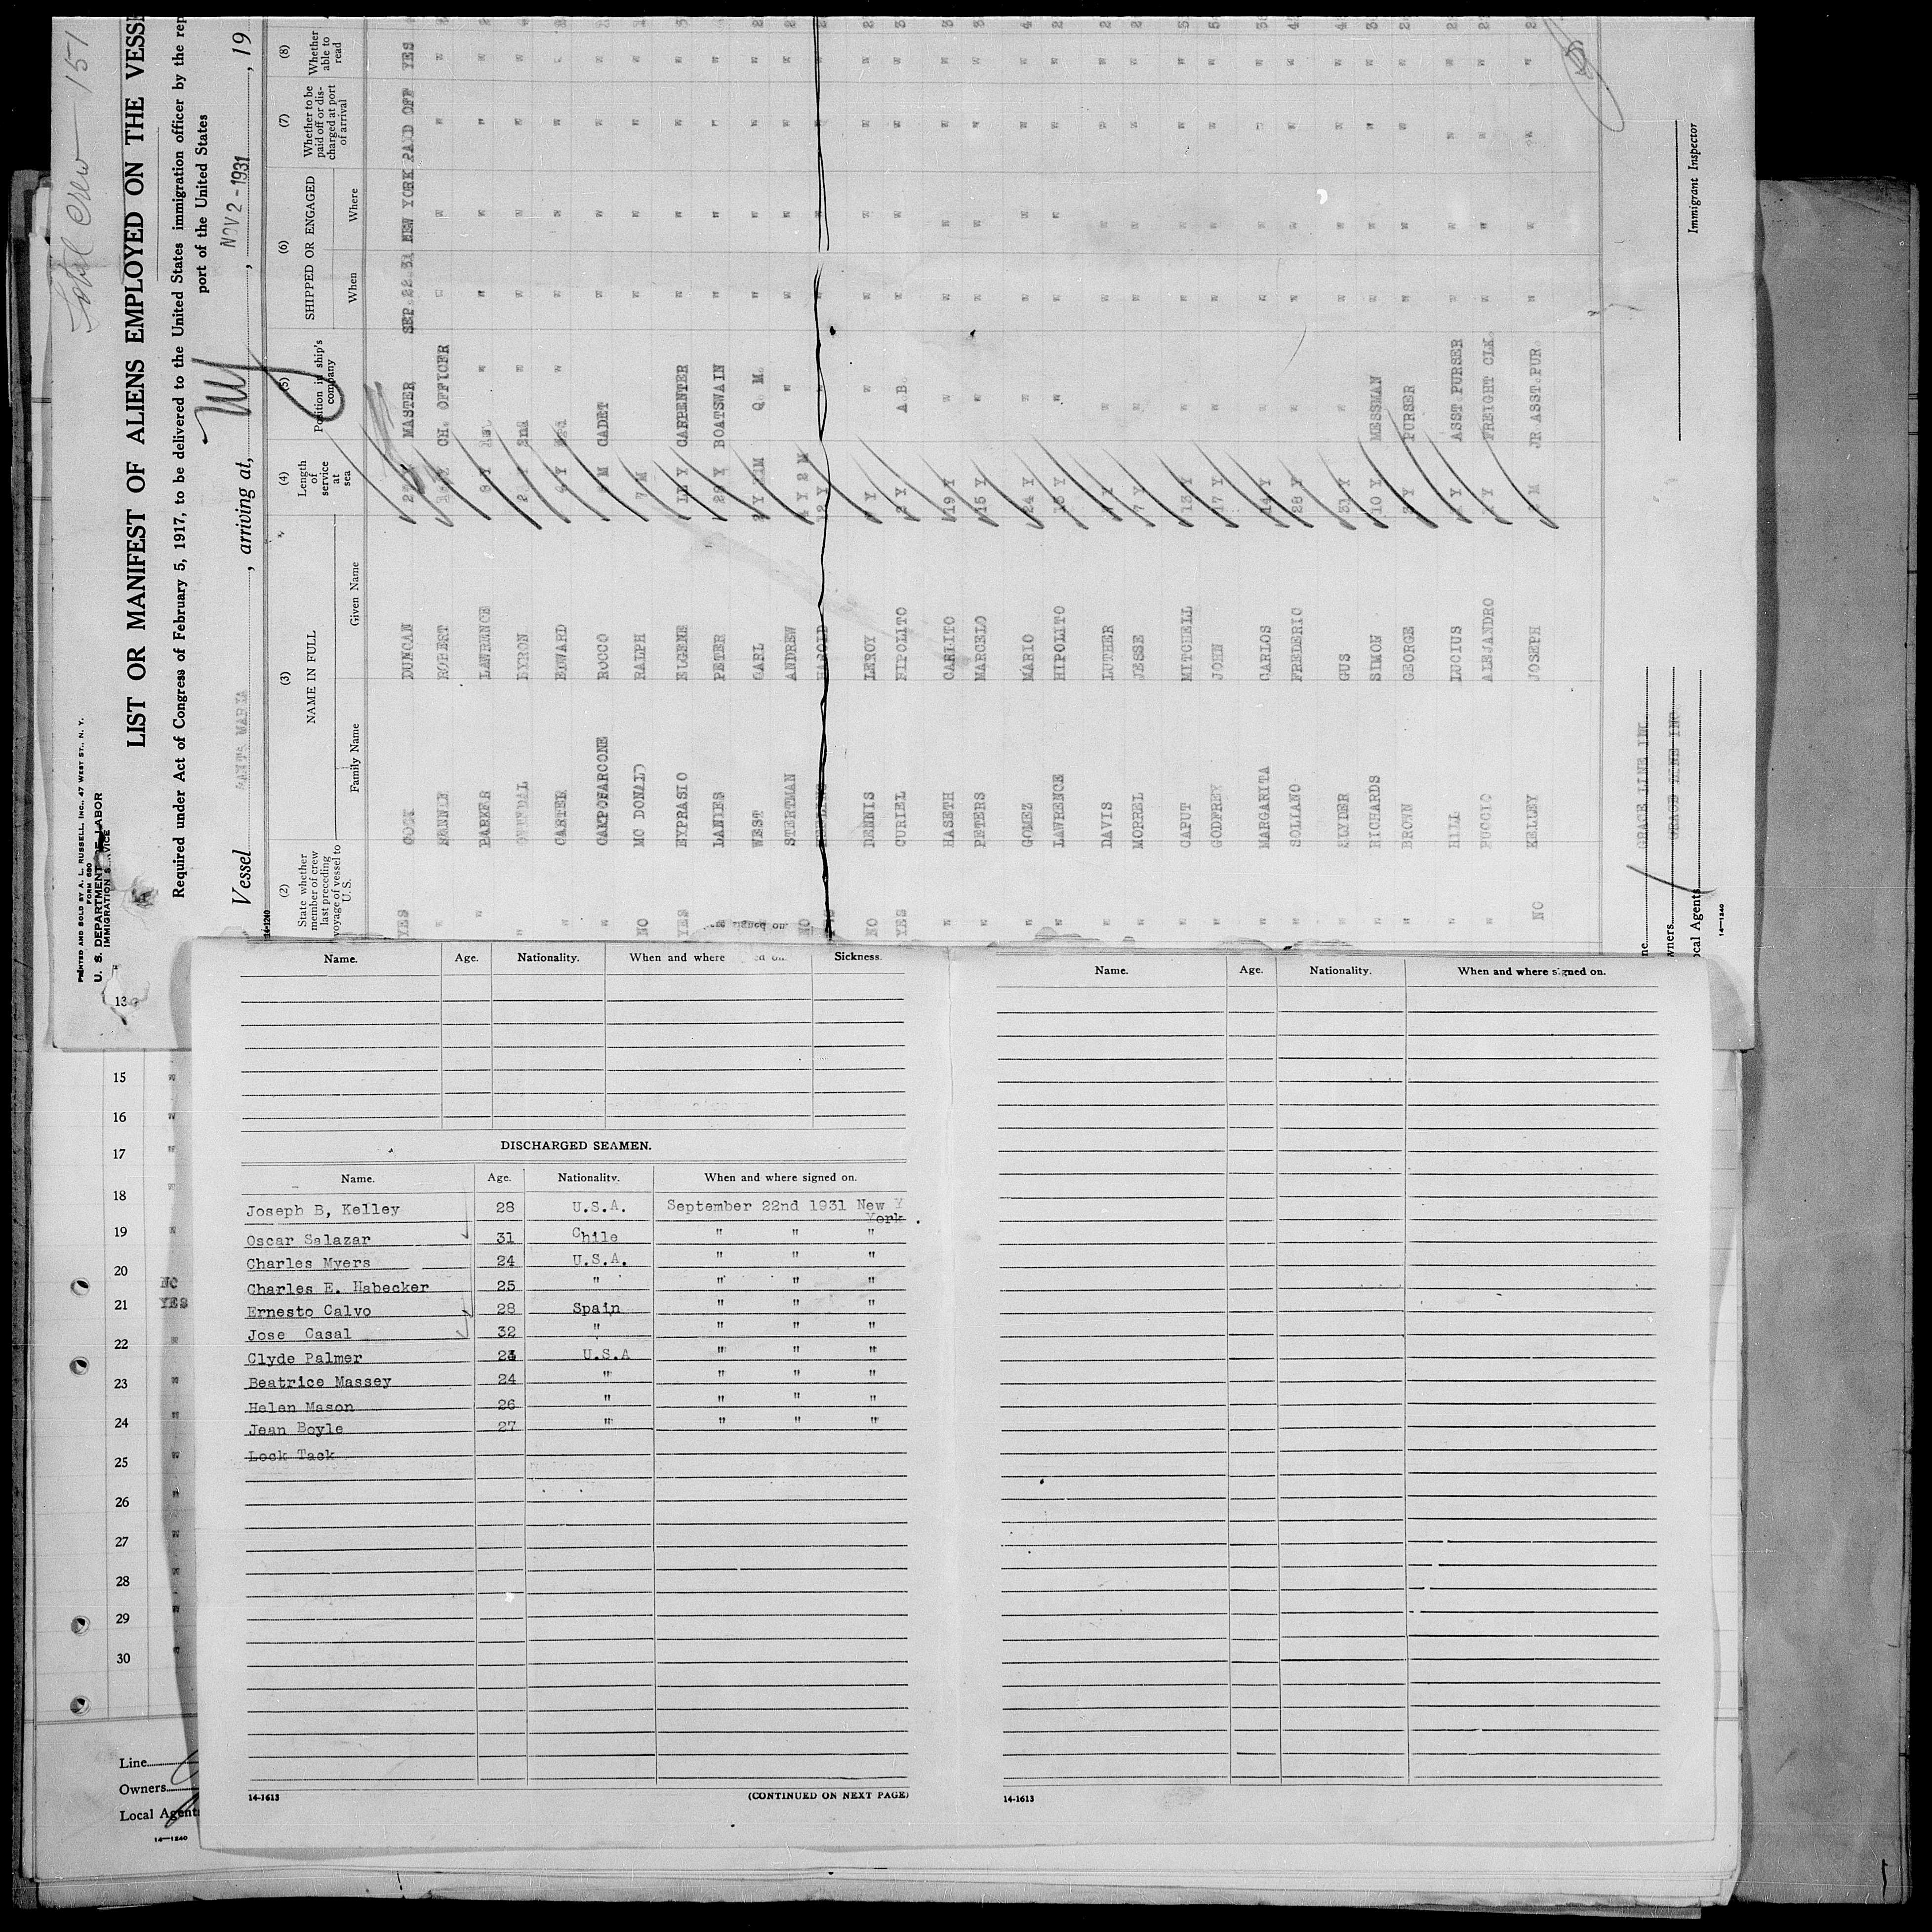 Total Crew - 151
PRINTED AND SOLD BY A. L. RUSSELL, INC., 47 WEST ST., N. Y.
FORM 680
U. S. DEPARTMENT OF LABOR
IMMIGRATION SERVICE
LIST OR MANIFEST OF ALIENS EMPLOYED ON THE VESSE
Required under Act of Congress of February 5, 1917, to be delivered to the United States immigration officer by the rep
port of the United States
Vessel SANTA MARIA , arriving at, NY , NOV 2 - 1931 , 19
14-1240
(2) (3) (4) (5) (6) (7) (8)
State whether member of crew last preceding voyage of vessel to U. S. NAME IN FULL Length of service at sea Position in ship's company SHIPPED OR ENGAGED Whether to be paid off or discharged at port of arrival Whether able to read
Family Name Given Name When Where
YES COOK DUNCAN MASTER SEP. 22 31 NEW YORK PAID OFF YES
" ROBERT CH. OFFICER " " " "
" BARKER LAWRENCE 1st " " " " "
" BYRON 2nd " " " " "
" CARTER EDWARD " " " " "
" ROCCO CADET " " " "
NO MC DONALD RALPH 7 M " " " "
YES EUPRASIO EUGENE CARPENTER " " " "
LANIES PETER BOATSWAIN " " " "
WEST CARL Q. M. " " " "
NO STERTMAN ANDREW 4 Y 2 M " " " " "
HAROLD 12 Y
NO DENNIS LEROY " " " " "
YES CURIEL HIPOLITO A.B. " " " "
" HASETH CARLITO 19 Y " " " " "
" PETERS MARCELO 15 Y " " " " "
" GOMEZ MARIO 24 Y " " " " "
" LAWRENCE HIPOLITO " " " " "
" DAVIS LUTHER " " " " "
" MORREL JESSE 7 Y " " " " "
" CAPUT MITCHELL 13 Y " " " " "
" GODFREY JOHN 17 Y " " " " "
" MARGARITA CARLOS 14 Y " " " " "
" SOLIANO FREDERIC 28 Y " " " " "
" SNYDER GUS 31 Y " " " " "
" RICHARDS SIMON 10 Y MESSMAN " " " "
" BROWN GEORGE PURSER " " " "
" HILL LUCIUS ASST.PURSER " " " "
" PUCCIO ALEJANDRO FREIGHT CLK. " " " "
NO KELLEY JOSEPH JR.ASST.PUR. " " " "
GRACE LINE INC.
wners GRACE LINE INC.
ocal Agents
Immigrant Inspector
14-1240
Name. Age. Nationality. When and where Sickness.
DISCHARGED SEAMEN.
Name. Age. Nationality. When and where signed on.
Joseph B, Kelley 28 U.S.A. September 22nd 1931 New Y
York .
Oscar Salazar 31 Chile " " "
Charles Myers 24 U.S.A. " " "
Charles E. Habecker 25 " " " "
Ernesto Calvo 28 Spain " " "
Jose Casal 32 " " " "
Clyde Palmer U.S.A " " "
Beatrice Massey 24 " " " "
Helen Mason 26 " " " "
Jean Boyle 27 " " " "
Lock Tack
14-1613 (CONTINUED ON NEXT PAGE)
Name. Age. Nationality. When and where signed on.
14-1613
13
15 "
16 "
17 "
18 "
19 "
20 NO
21 YES
22 "
23 "
24 "
25 "
26 "
27 "
28 "
29 "
30 "
Line
Owners
Local Agents
14-1240